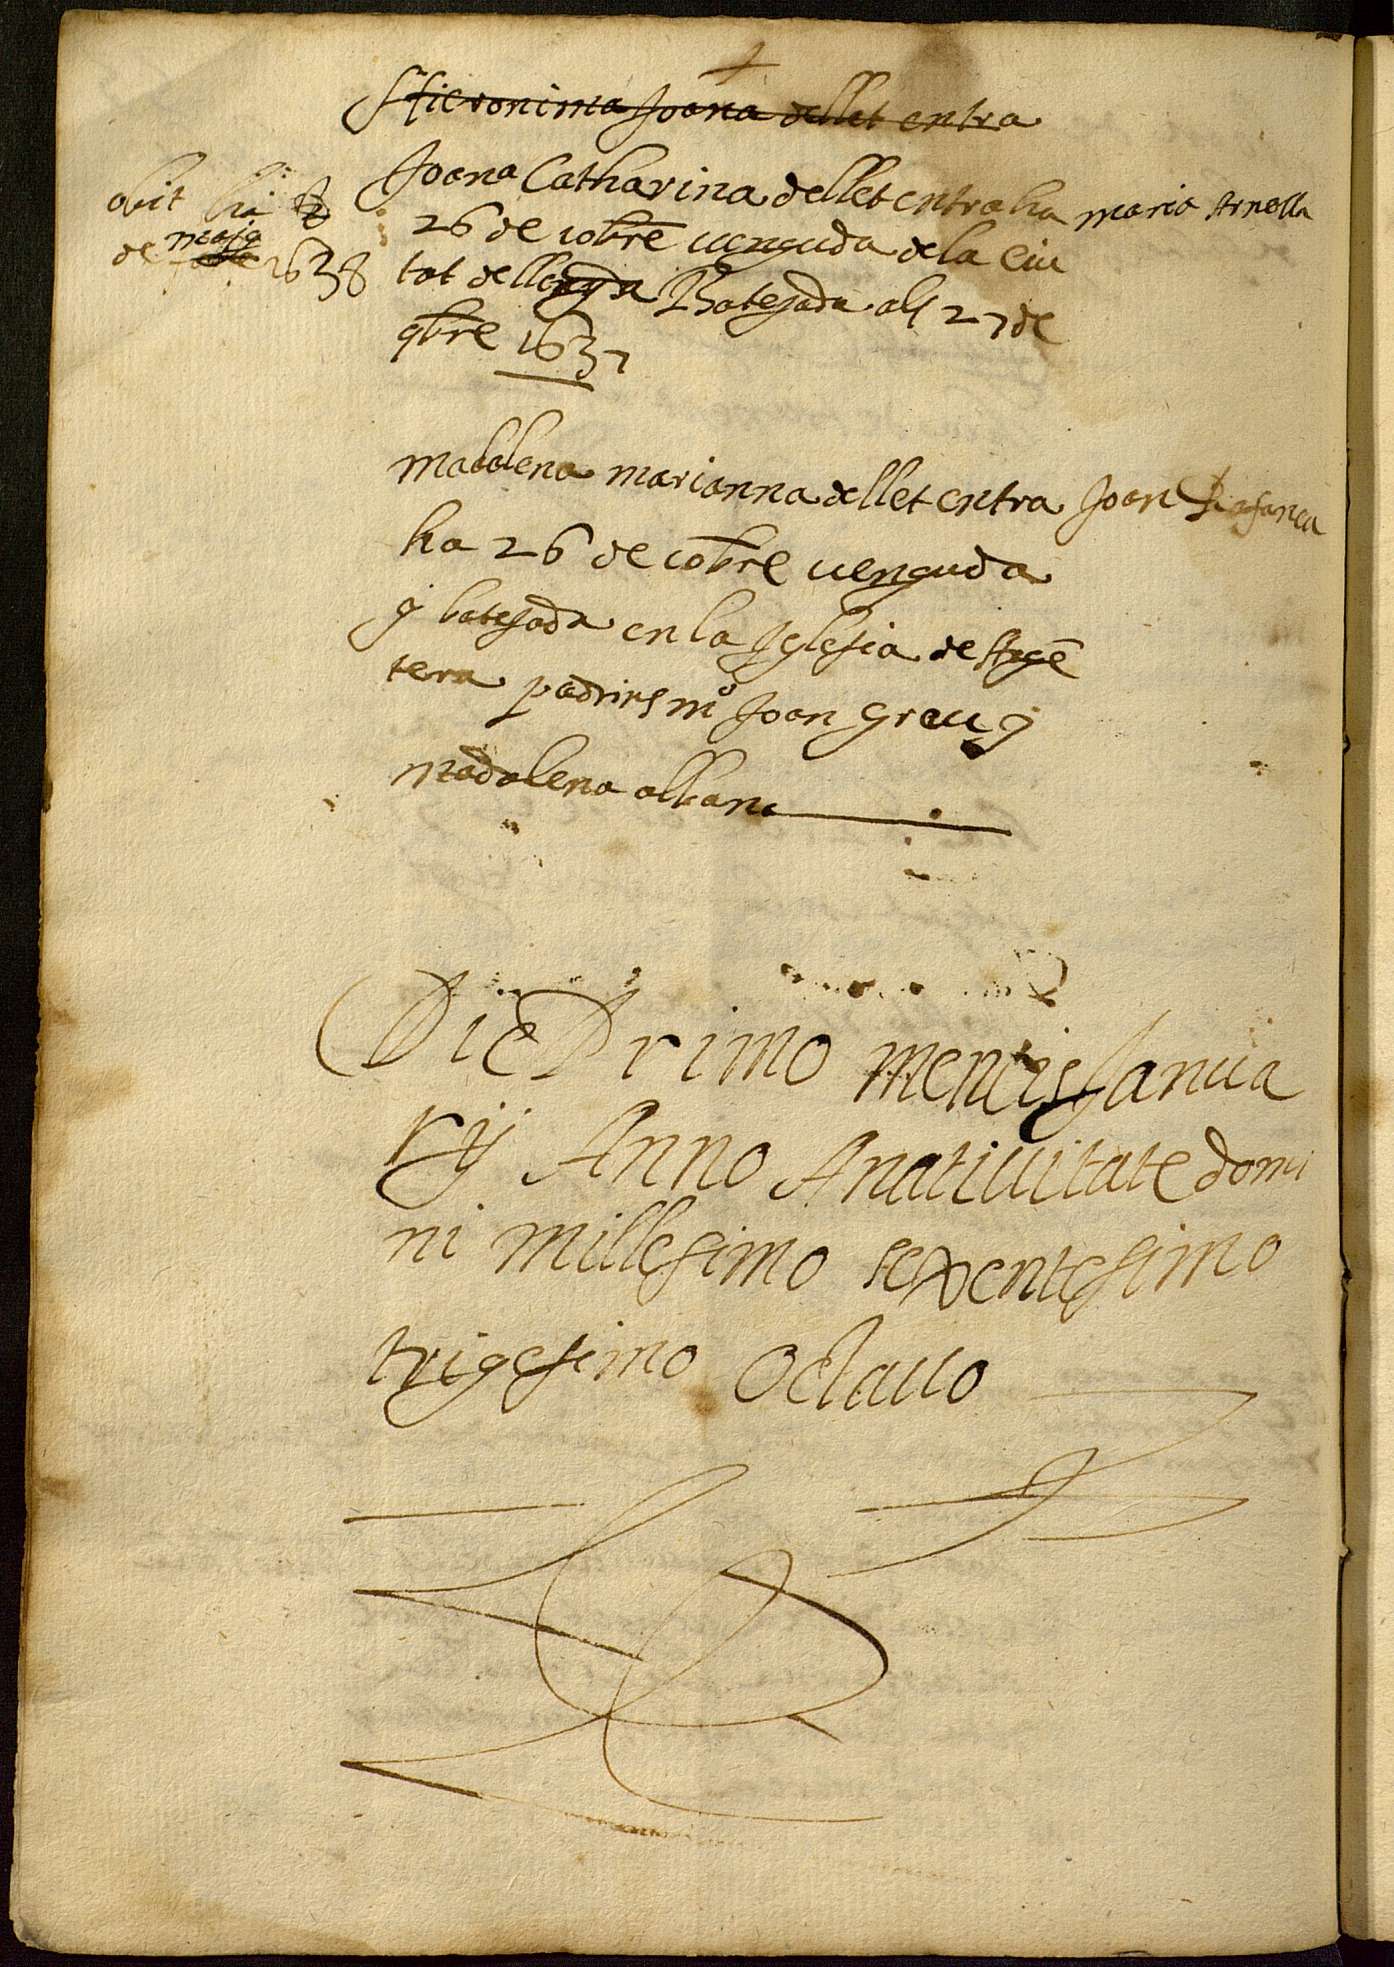 Hieronima Joana dellet entra
Joana Catharina dellet entra ha
26 de xobre venguda de la Ciu
tat de lleyda Batejada als 27 de
qbre 1637
maria Arnella
obit ha 8
de maig 1638
madalena marianna dellet entra
ha 26 de xobre venguda
y batejada en la Iglesia de
tera padrins mº Joan Grau y
madalena
Joan
Die Primo mencis Janua
rij Anno Anativitate domi
ni millesimo sexentesimo
trigesimo Octauo